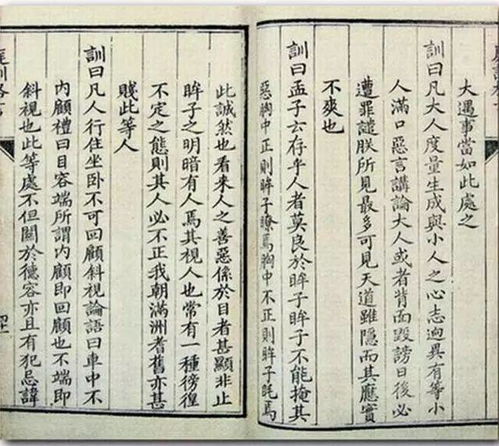 大遇事當如此處之
訓曰凡大人度量生成與小人之心志迥異有等小
人滿口惡言講論大人或者背面毀謗日後必
遭罪譴朕所見最多可見天道雖隱而其應實
不爽也
訓曰孟子云存乎人者莫良於眸子眸子不能掩其
惡胸中正則眸子瞭焉胸中不正則眸子眊焉
此誠然也看來人之善惡係於目者甚顯非止
眸子之明暗有人焉其視人也常有一種彷徨
不定之態則其人必不正我朝滿洲耆舊亦甚
賤此等人
訓曰凡人行住坐卧不可回顧斜視論語曰車中不
內顧禮曰目容端所謂內顧即回顧也不端即
斜視也此等處不但關於德容亦且有犯忌諱
庭訓格言